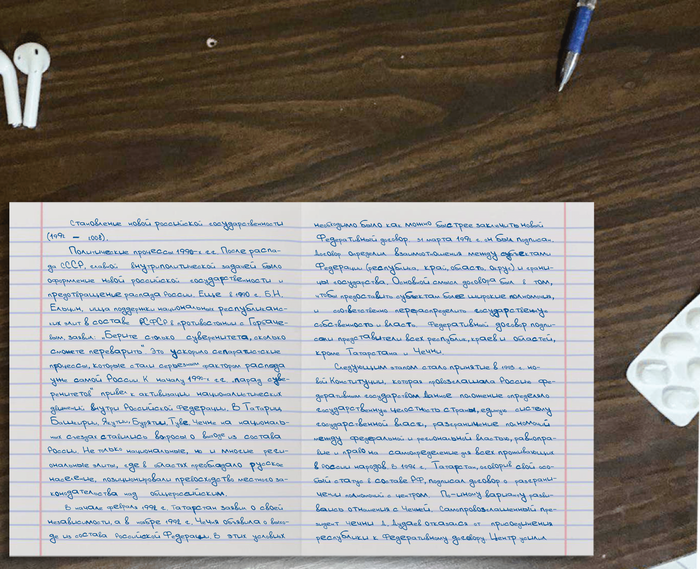 Становление новой российской государственности
(1991 –
Политические процессы 1990-х гг. После распа-
да СССР главной внутриполитической задачей было
оформление новой российской государственности и
предотвращение распада России. Еще в 1990 г. Б.Н.
Ельцин, ища поддержки национальных республиканс-
ких элит в составе РСФСР в противостоянии с Горбаче-
вым, заявил: „Берите столько суверенитета, сколько
сможете переварить". Это ускорило сепаратистские
процессы, которые стали серьезным фактором распада
уже самой России. К началу 1990-х гг. „парад суве-
ренитетов" привел к активизации националистических
движений внутри Российской Федерации. В Татарии,
Башкирии, Якутии, Бурятии, Туве, Чечне на националь-
ных съездах ставились вопросы о выходе из состава
России. Не только национальные, но и многие реги-
ональные элиты, где в областях преобладало русское
население, позиционировали превосходство местного за-
конодательства над общероссийским.
В начале февраля 1992 г. Татарстан заявил о своей
независимости, а в ноябре 1992 г. Чечня объявила о выхо-
де из состава Российской Федерации. В этих условиях
необходимо было как можно быстрее заключить новый
Федеративный договор. 31 марта 1992 г. он был подписан.
Договор определил взаимоотношения между субъектами
Федерации (республики, края, области, округ) и грани-
цы государства. Основной смысл договора был в том,
чтобы предоставить субъектам более широкие полномочия,
и соответственно перераспределить государственную
собственность и власть. Федеративный договор подпи-
сали представители всех республик, краев и областей,
кроме Татарстана и Чечни.
Следующим этапом стало принятие в 1993 г. но-
вой Конституции, которая провозглашала Россию фе-
деративным государством. Данное положение определяло
государственную целостность страны, единую систему
государственной власти, разграничение полномочий
между федеральной и региональной властью, равнопра-
вие и право на самоопределение для всех проживающих
в России народов. В 1994 г. Татарстан, оговорив свой осо-
бый статус в составе РФ, подписал договор о разграни-
чении полномочий с центром. По-иному варианту разви-
вались отношения с Чечней. Самопровозглашенный пре-
зидент Чечни Д. Дудаев отказался от присоединения
республики к Федеративному договору. Центр решил